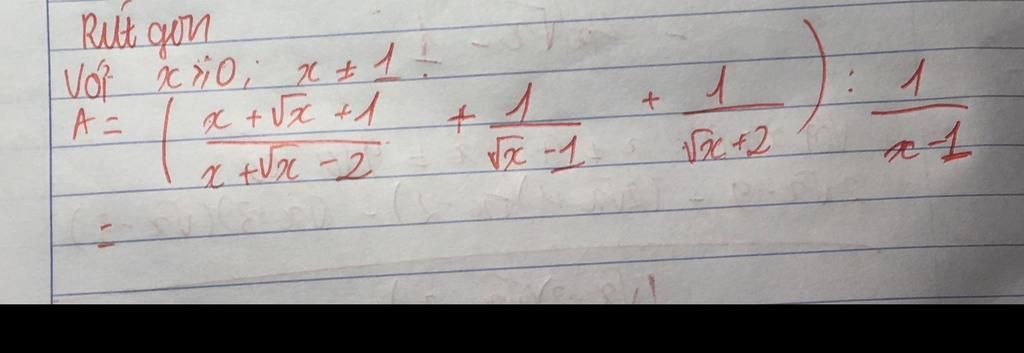 Rút gọn
Với x ≥ 0; x ≠ 1 :
A = ( (x + √x + 1)/(x + √x - 2) + 1/(√x - 1) + 1/(√x + 2) ) : 1/(x - 1)
=